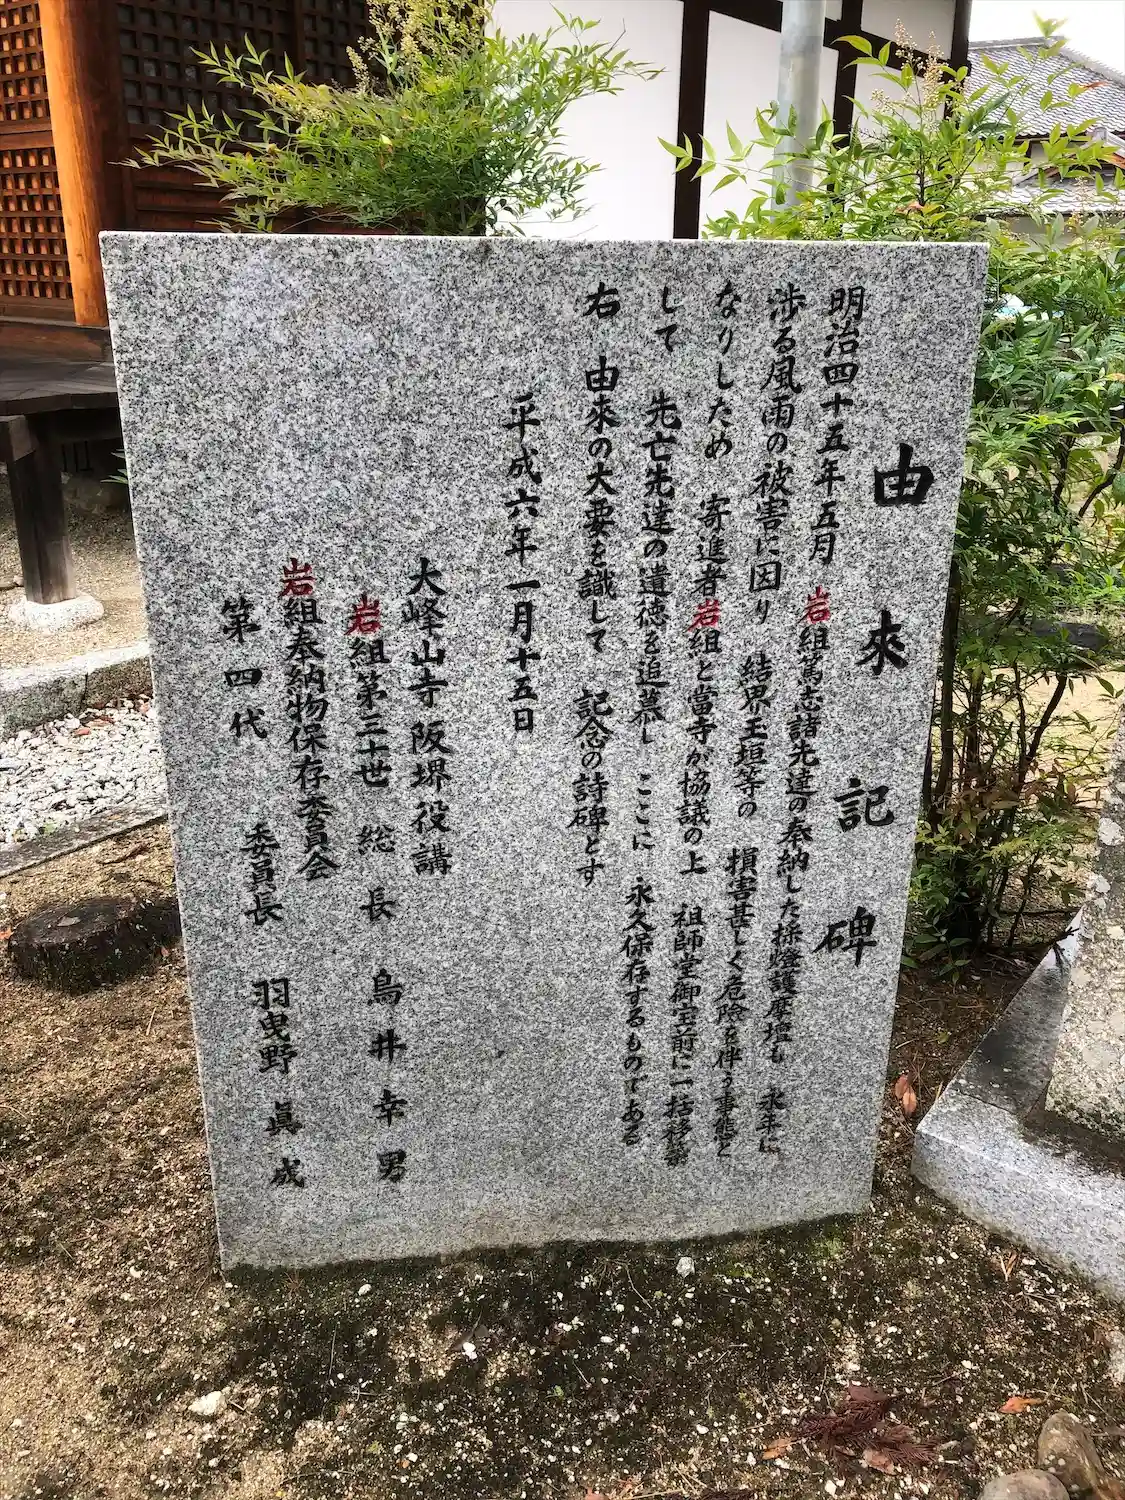 由來記碑
明治四十五年五月 岩組篤志諸先達の奉納した採燈護摩壇も 永年に
渉る風雨の被害に因り 結界玉垣等の 損害甚しく危険を伴う事態と
なりしため 寄進者岩組と當寺が協議の上 祖師堂御宝前に一括移築
して 先亡先達の遺徳を追慕し ここに 永久保存するものである
右 由來の大要を識して 記念の詩碑とす
平成六年一月十五日
大峰山寺阪堺役講
岩組第三十世 総長 鳥井幸男
岩組奉納物保存委員会
第四代 委員長 羽曳野眞成